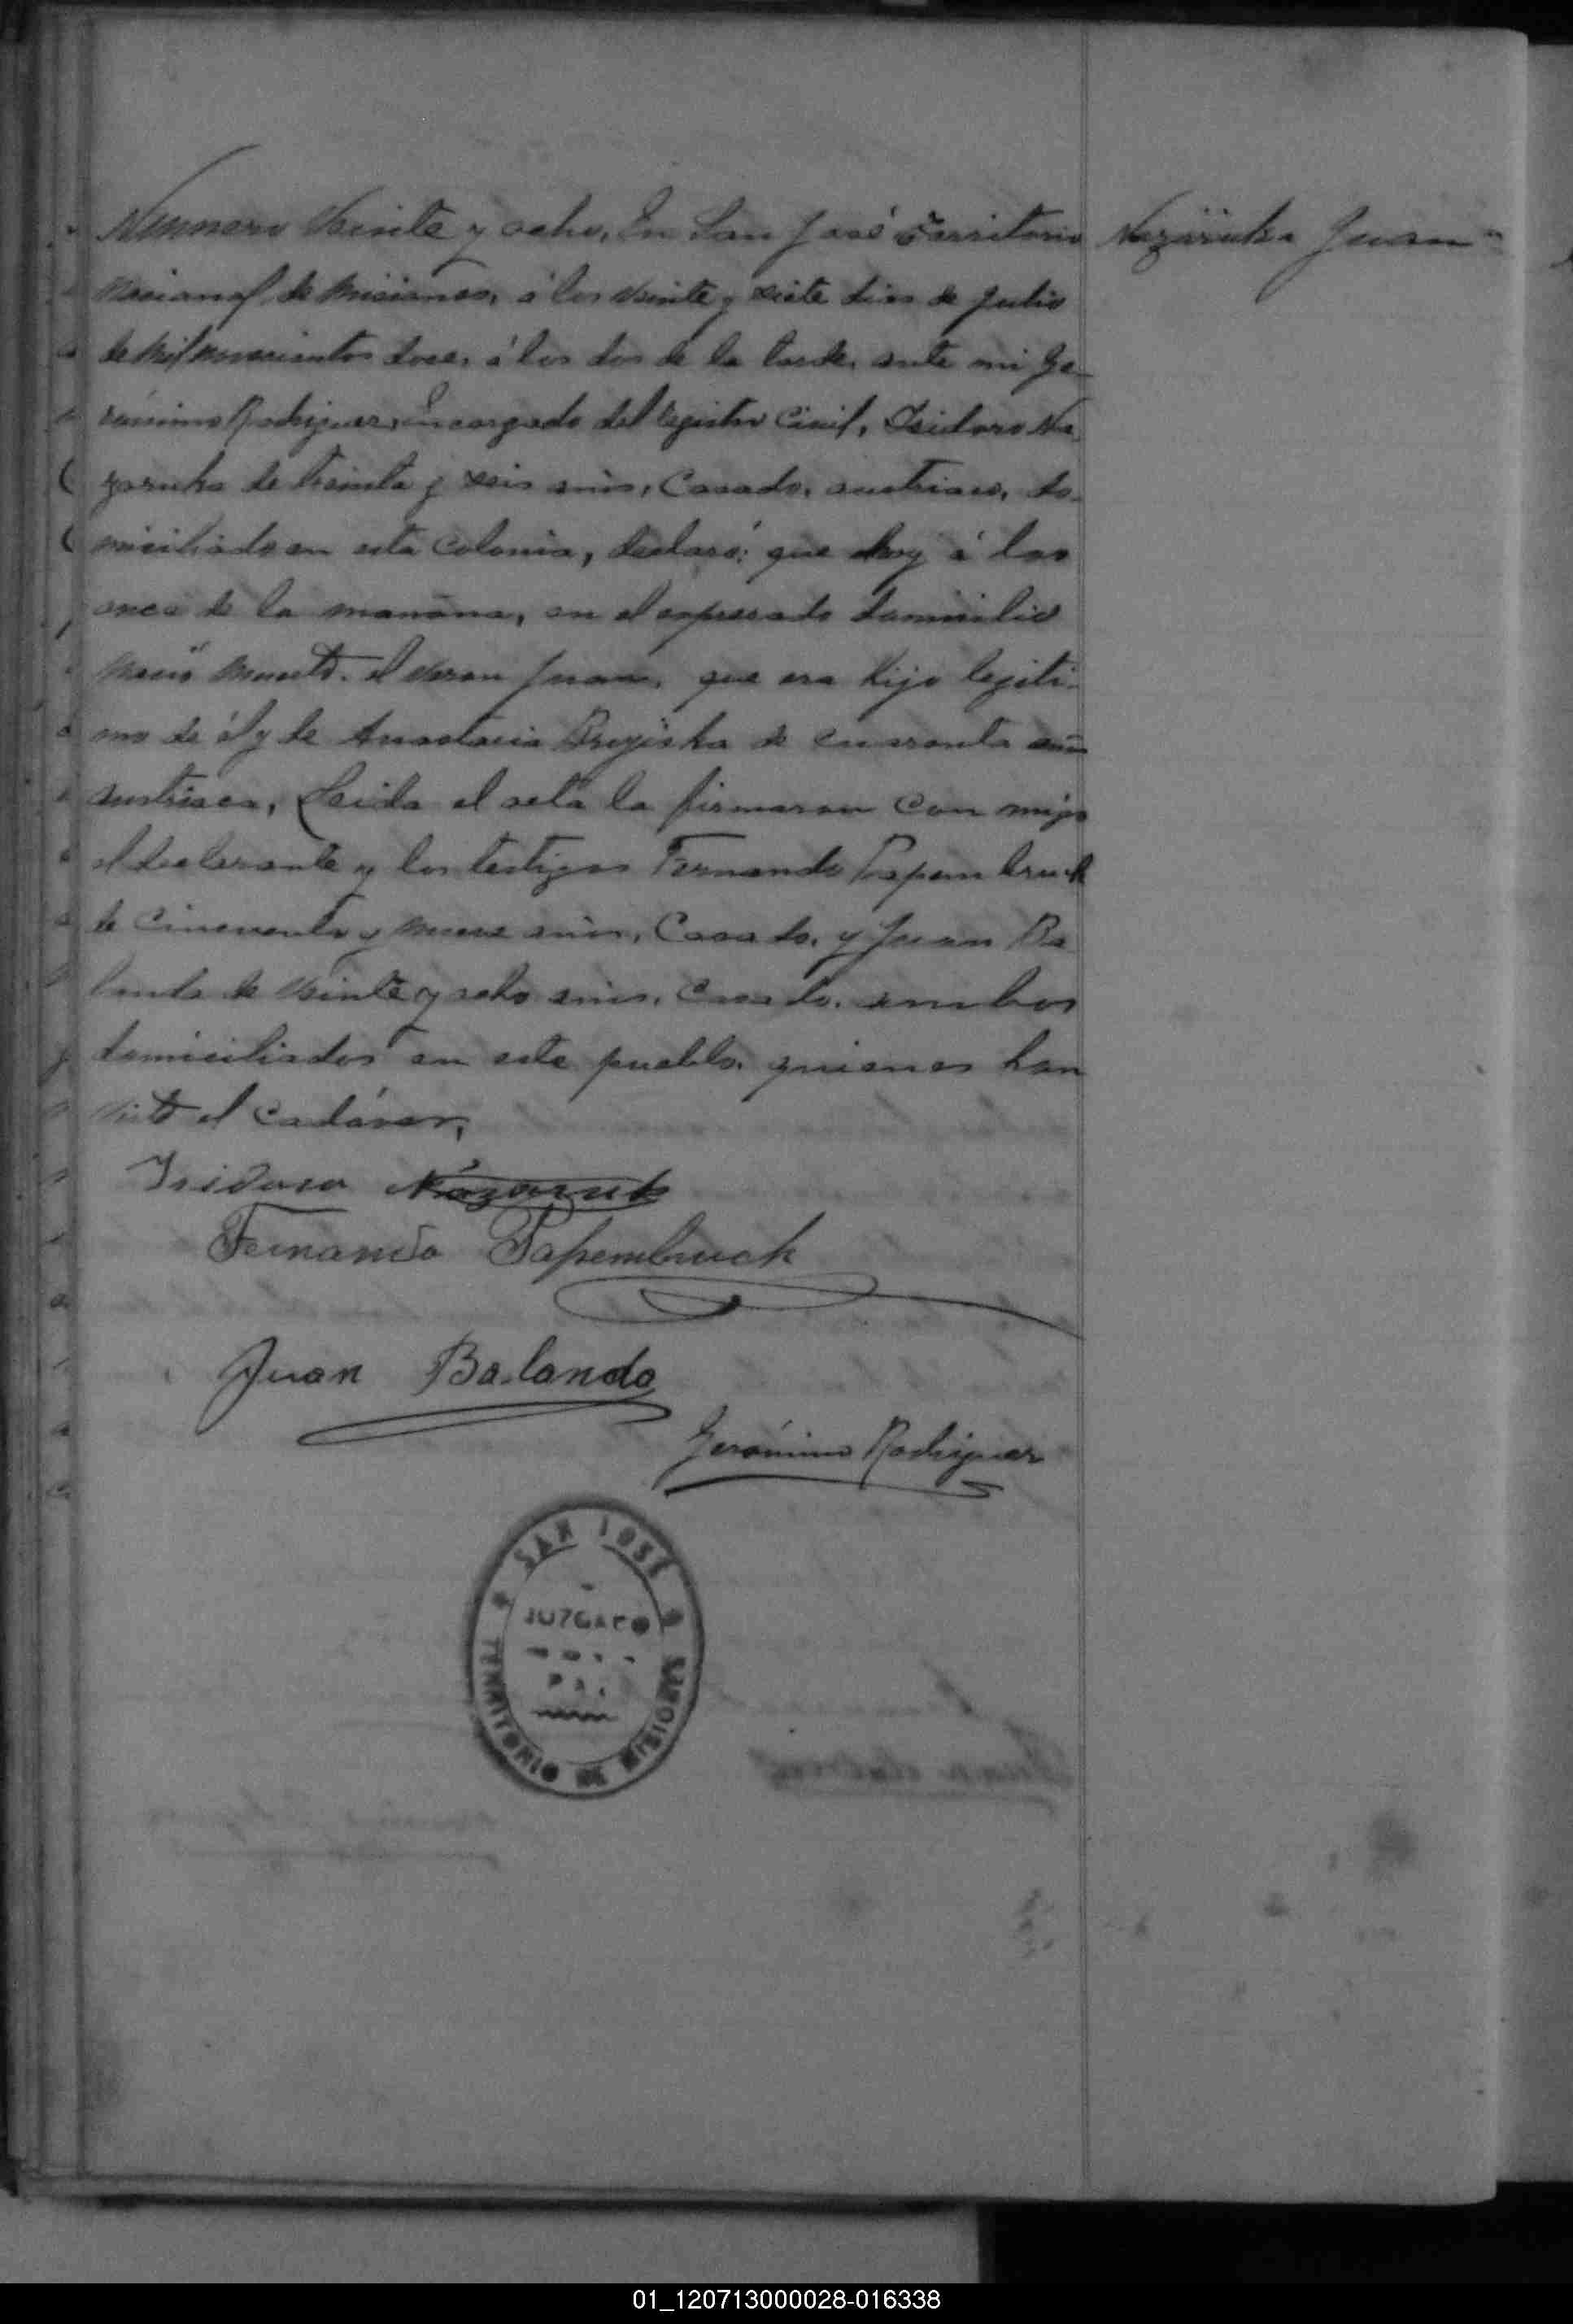 Numero Veinte y ocho. En San José Territorio
Nacional de Misiones, á los veinte y siete dias de Julio
de mil novecientos doce, á las dos de la tarde, ante mi Ge-
rónimo Rodriguez, Encargado del registro Civil, Isidoro Na
zaruka de treinta y seis años, Casado, austriaco, do-
miciliado en esta Colonia, declaró: que hoy á las
once de la mañana, en el expresado domicilio
nació muerto el varon Juan, que era hijo legiti-
mo de él y de Anastacia de cuarenta años
austriaca, Leida el acta la firmaron con migo
el declarante y los testigos Fernando Papembruck
de cincuenta y nueve años, Casado, y Juan Ba
landa de veinte y ocho años, Casado, ambos
domiciliados en este pueblo, quienes han
visto el cadáver,
Nazaruka Juan
Isidoro Nazaruk
Fernando Papembruck
Juan Balanda
Gerónimo Rodriguez
SAN JOSÉ
JUZGADO
DE
PAZ
TERRITORIO DE MISIONES
01_120713000028-016338